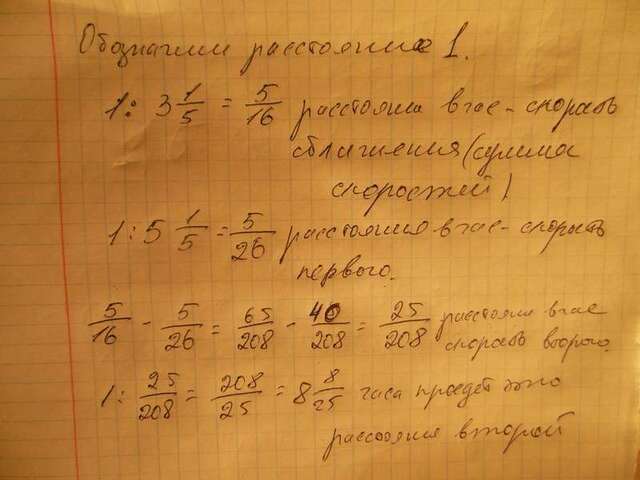 Обозначим расстояние 1.
1: 3 1/5 = 5/16 расстояния в час - скорость
сближения (сумма
скоростей)
1: 5 1/5 = 5/26 расстояния в час - скорость
первого.
5/16 - 5/26 = 65/208 - 40/208 = 25/208 расстояния в час
скорость второго.
1: 25/208 = 208/25 = 8 8/25 часа пройдет это
расстояния второй